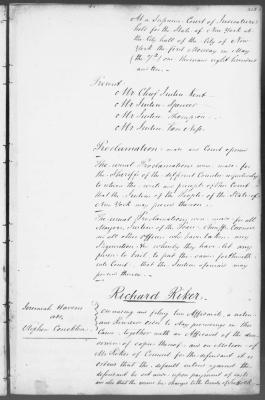 At a Supreme Court of Judicature
held for the State of New York at
the City Hall of the City of New
York the first Monday in May
(the 7th) one thousand eight hundred
and ten
Present
Mr Chief Justice Kent
Mr Justice Spencer
Mr Justice Thompson
Mr Justice Van Ness
Proclamation made and Court opened
The usual Proclamation was made for
the Sheriffs of the different Counties
to whom the writs and precepts of this Court
that the Justices of the People of the State of
New York may proceed thereon
The usual Proclamation was made for all
Mayors, Justices of the Peace, Sheriffs, Coroners
and all other officers who have taken any
Inquisition whereby they have let any
person to bail to put the same forthwith
into Court that the Justices aforesaid may
proceed thereon
Richard Riker
Jeremiah Havens
ads.
Stephen
On reading and filing an Affidavit, a notice
in this
Cause, together with an Affidavit of the due
service of copies thereof, and on Motion of
Mr Riker of Counsel for the defendant it is
ordered that the default entered against the
defendant be set aside upon payment of costs
and also that the venue be changed to the County of Suffolk